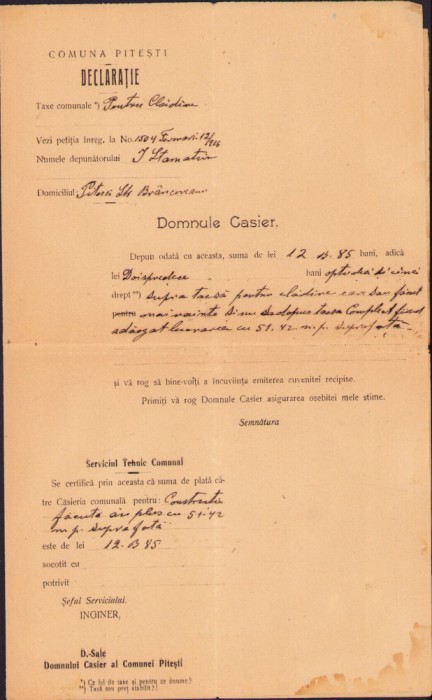 COMUNA PITEȘTI
DECLARAȚIE
Taxe comunale *) Pentru Clădire
Vezi petiția înreg. la No. 1504
Numele depunătorului I Stamatin
Domiciliul Pitești Str Brâncoveanu
Domnule Casier,
Depun odată cu aceasta, suma de lei 12 B. 85 bani, adică
lei Doisprezece bani optzeci si cinci
drept **) supra taxă pentru clădire care sau făcut
pentru mai nainte si nu sa depus taxa Complect fiind
adăogat cu 51.42 m.p. suprafață
și vă rog să bine-voiți a încuviința emiterea cuvenitei recipise.
Primiți vă rog Domnule Casier asigurarea osebitei mele stime.
Semnătura
Serviciul Tehnic Comunal
Se certifică prin aceasta că suma de plată că-
tre Căsieria comunală pentru: Constructia
făcută în plus cu 51.42
m.p. suprafață
este de lei 12. B 85
socotit cu
potrivit
Șeful Serviciului.
INGINER,
D-Sale
Domnului Casier al Comunei Pitești
*) Ce fel de taxe și pentru ce anume?
**) Taxă sau preț stabilit?